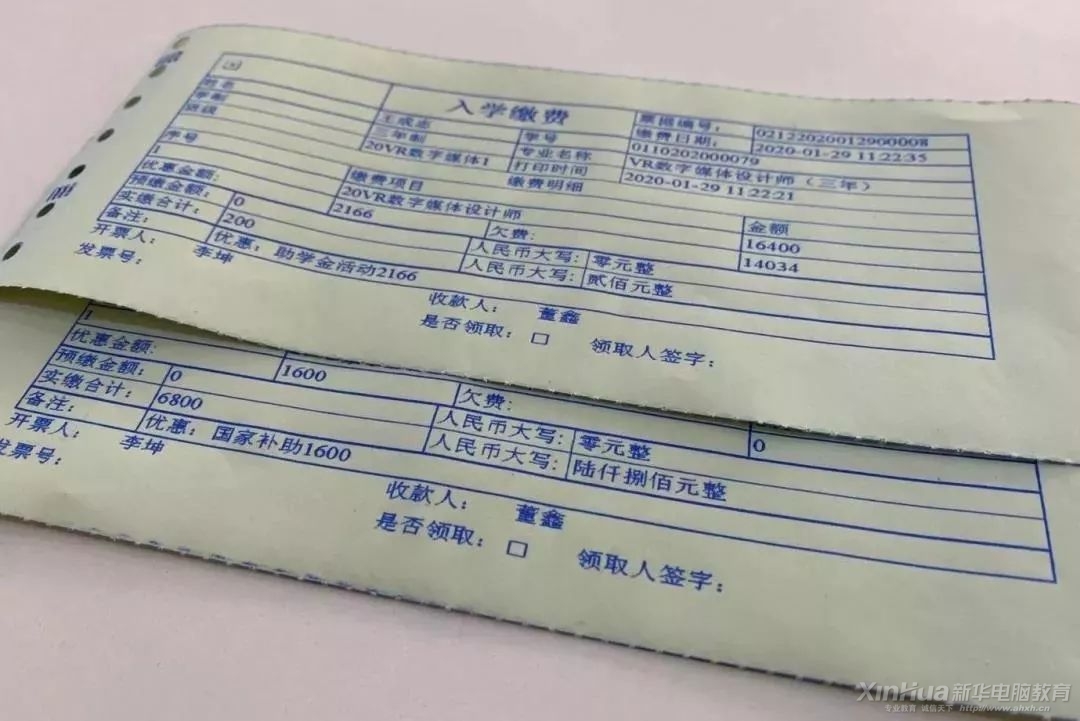 入学缴费
票据编号： 021220200129000008
缴费日期： 2020-01-29 11:22:35
姓名 王成志 学号 0110202000079
学制 三年制 专业名称 VR数字媒体设计师（三年）
班级 20VR数字媒体1 打印时间 2020-01-29 11:22:21
缴费明细
序号 缴费项目 金额
1 20VR数字媒体设计师 16400
优惠金额： 2166 欠费： 14034
预缴金额： 0 人民币大写： 零元整
实缴合计： 200 人民币大写： 贰佰元整
备注： 优惠：助学金活动2166
开票人： 李坤 收款人： 董鑫
发票号： 是否领取：□ 领取人签字：
1
优惠金额： 1600 欠费： 0
预缴金额： 0 人民币大写： 零元整
实缴合计： 6800 人民币大写： 陆仟捌佰元整
备注： 优惠：国家补助1600
开票人： 李坤 收款人： 董鑫
发票号： 是否领取：□ 领取人签字：
XinHua新华电脑教育
专业教育 诚信天下 http://www.ahxh.cn